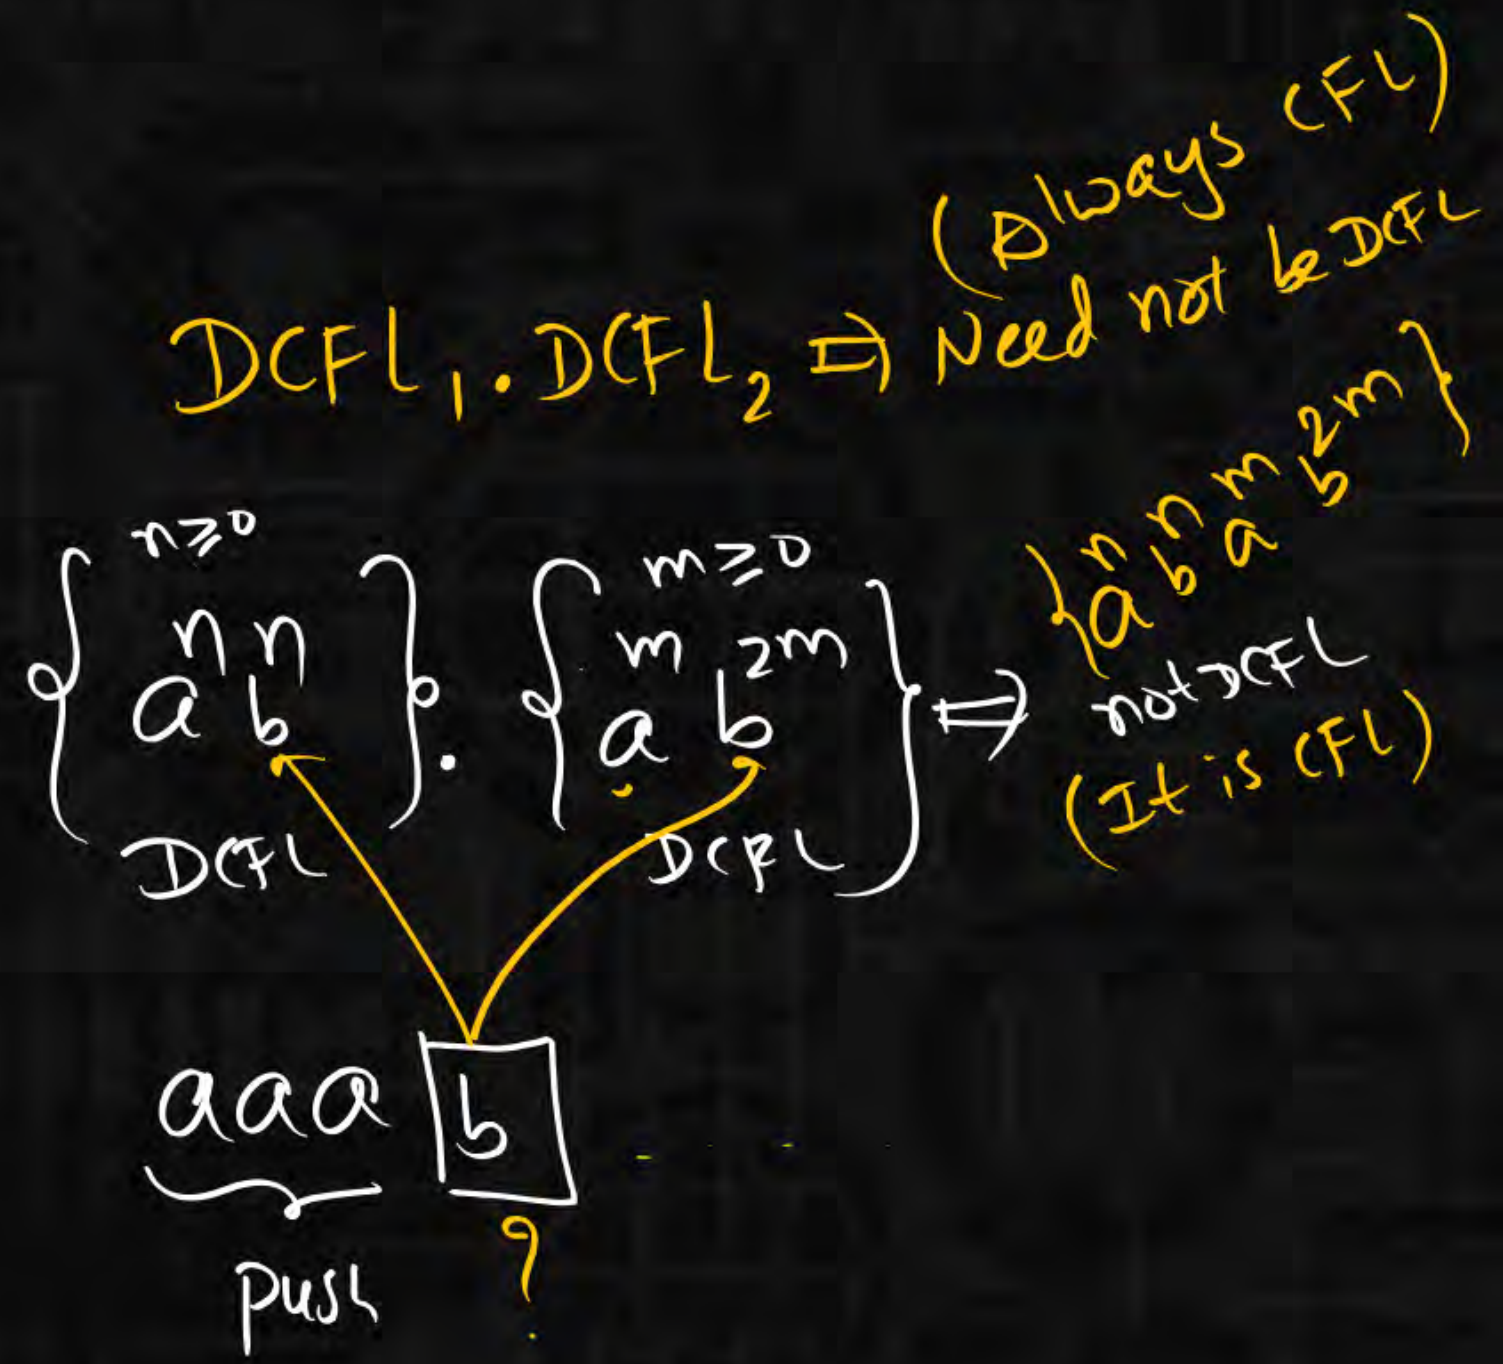 (Always CFL)
DCFL₁ . DCFL₂ ⇒ Need not be DCFL
{ aⁿ bⁿ n≥0 } . { aᵐ b²ᵐ m≥0 } ⇒ { aⁿ bⁿ aᵐ b²ᵐ }
DCFL DCFL not DCFL
(It is CFL)
aaa b - - -
push ?